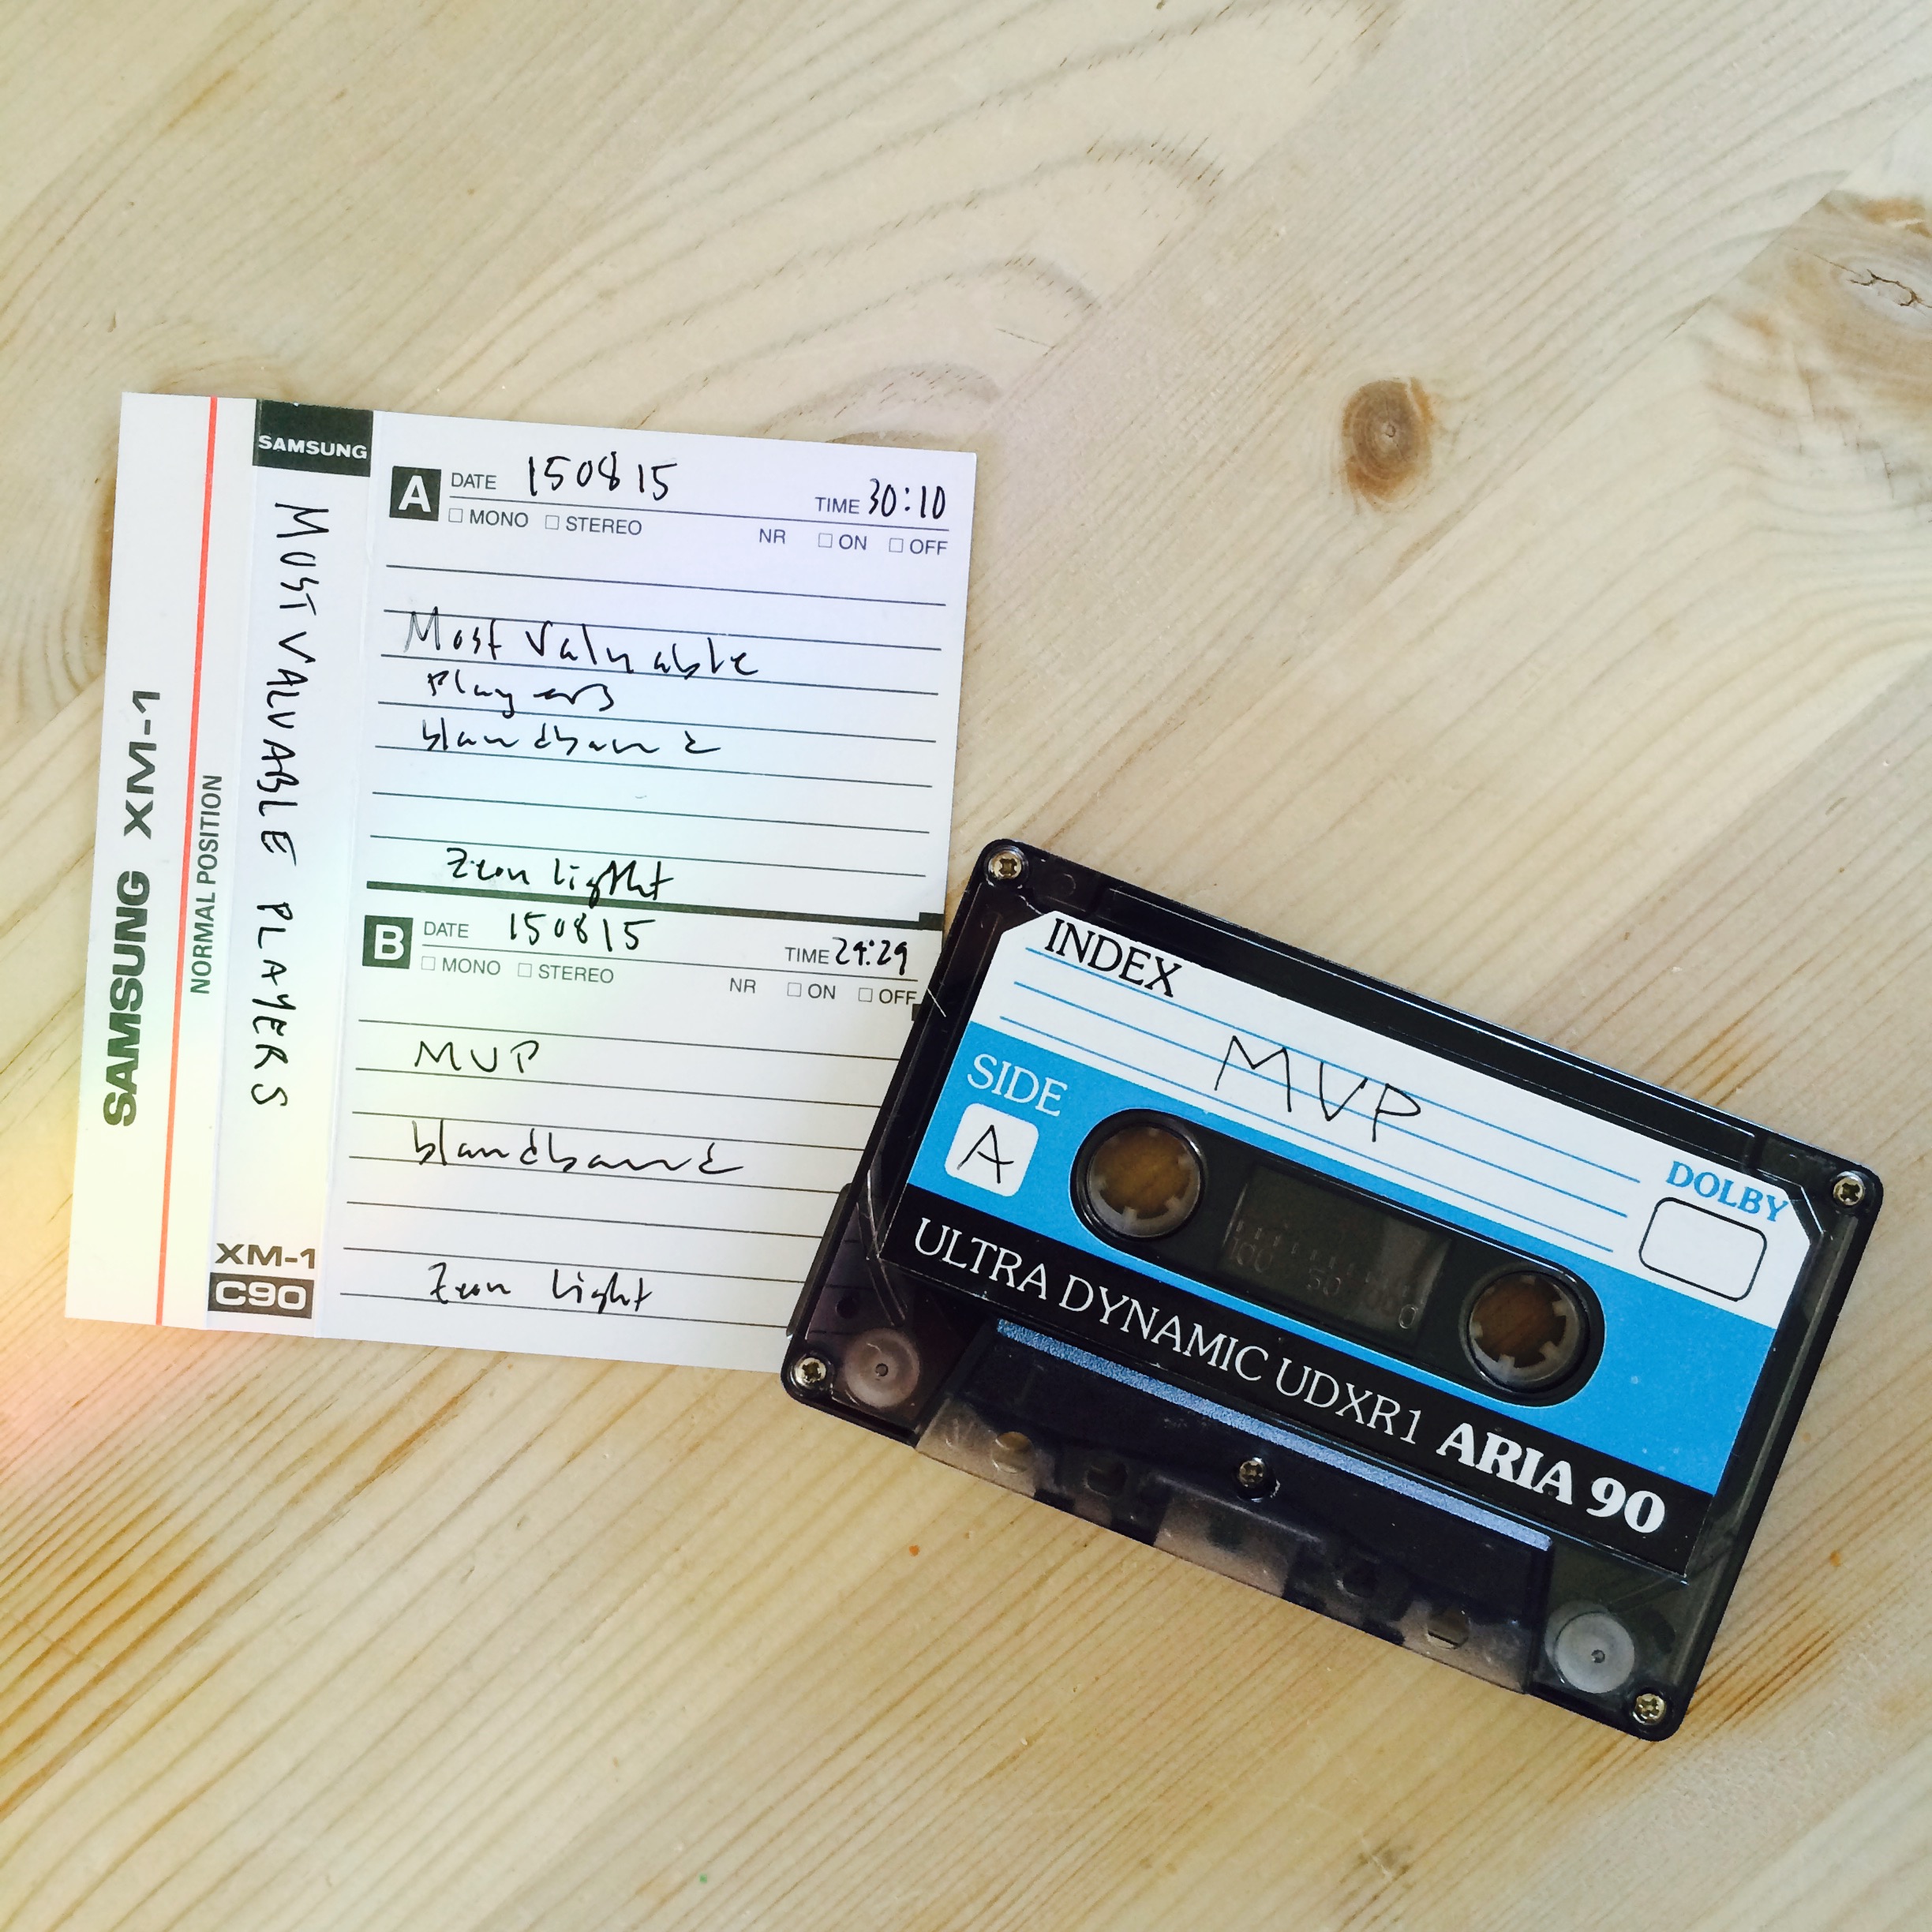 SAMSUNG XM-1
NORMAL POSITION
SAMSUNG
MOST VALUABLE PLAYERS
XM-1
C90
A DATE 150815 TIME 30:10
☐ MONO ☐ STEREO NR ☐ ON ☐ OFF
Most Valuable
Players
blandband
Zeon light
B DATE 150815 TIME 29:29
☐ MONO ☐ STEREO NR ☐ ON ☐ OFF
MVP
blandband
Zeon light
INDEX
MVP
SIDE
A
DOLBY
100 50 0
ULTRA DYNAMIC UDXR1 ARIA 90